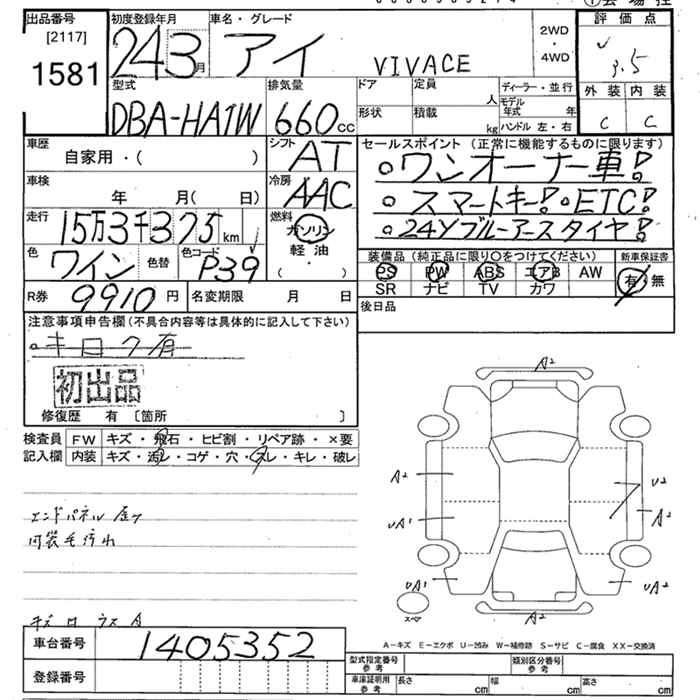 出品番号 [2117] 1581
初度登録年月 24 3月
車名・グレード アイ VIVACE
2WD・4WD
評価点 3.5
外装 内装
C C
型式 DBA-HA1W
排気量 660cc
ドア 定員 人
形状 積載 kg
ディーラー・並行
モデル年式 年
ハンドル 左・右
車歴 自家用・( )
シフト AT
セールスポイント (正常に機能するものに限ります)
ワンオーナー車!
スマートキー! ETC!
24Yブルーアースタイヤ!
車検 年 月( 日)
冷房 AAC
走行 15万3千375km
燃料 ガソリン 軽油 ( ・ )
色 ワイン 色替 色コード P39
装備品(純正品に限り○をつけてください) 新車保証書
PS PW ABS エアB AW
SR ナビ TV カワ
有・無
R券 9910円 名変期限 月 日
後日品
注意事項申告欄(不具合内容等は具体的に記入して下さい)
初出品
修復歴 有 〔箇所 〕
検査員記入欄
FW キズ・飛石・ヒビ割・リペア跡・×要
内装 キズ・汚レ・コゲ・穴・スレ・キレ・破レ
エンドパネル
内装毛汚れ
A2
A2 U2
UA1 A2
UA1 UA2
スペア A2
A−キズ E−エクボ U−凹み W−補修跡 S−サビ C−腐食 XX−交換済
車台番号 1405352
登録番号
型式指定番号参考 類別区分番号参考
車庫証明用参考 長さ cm 幅 cm 高さ cm